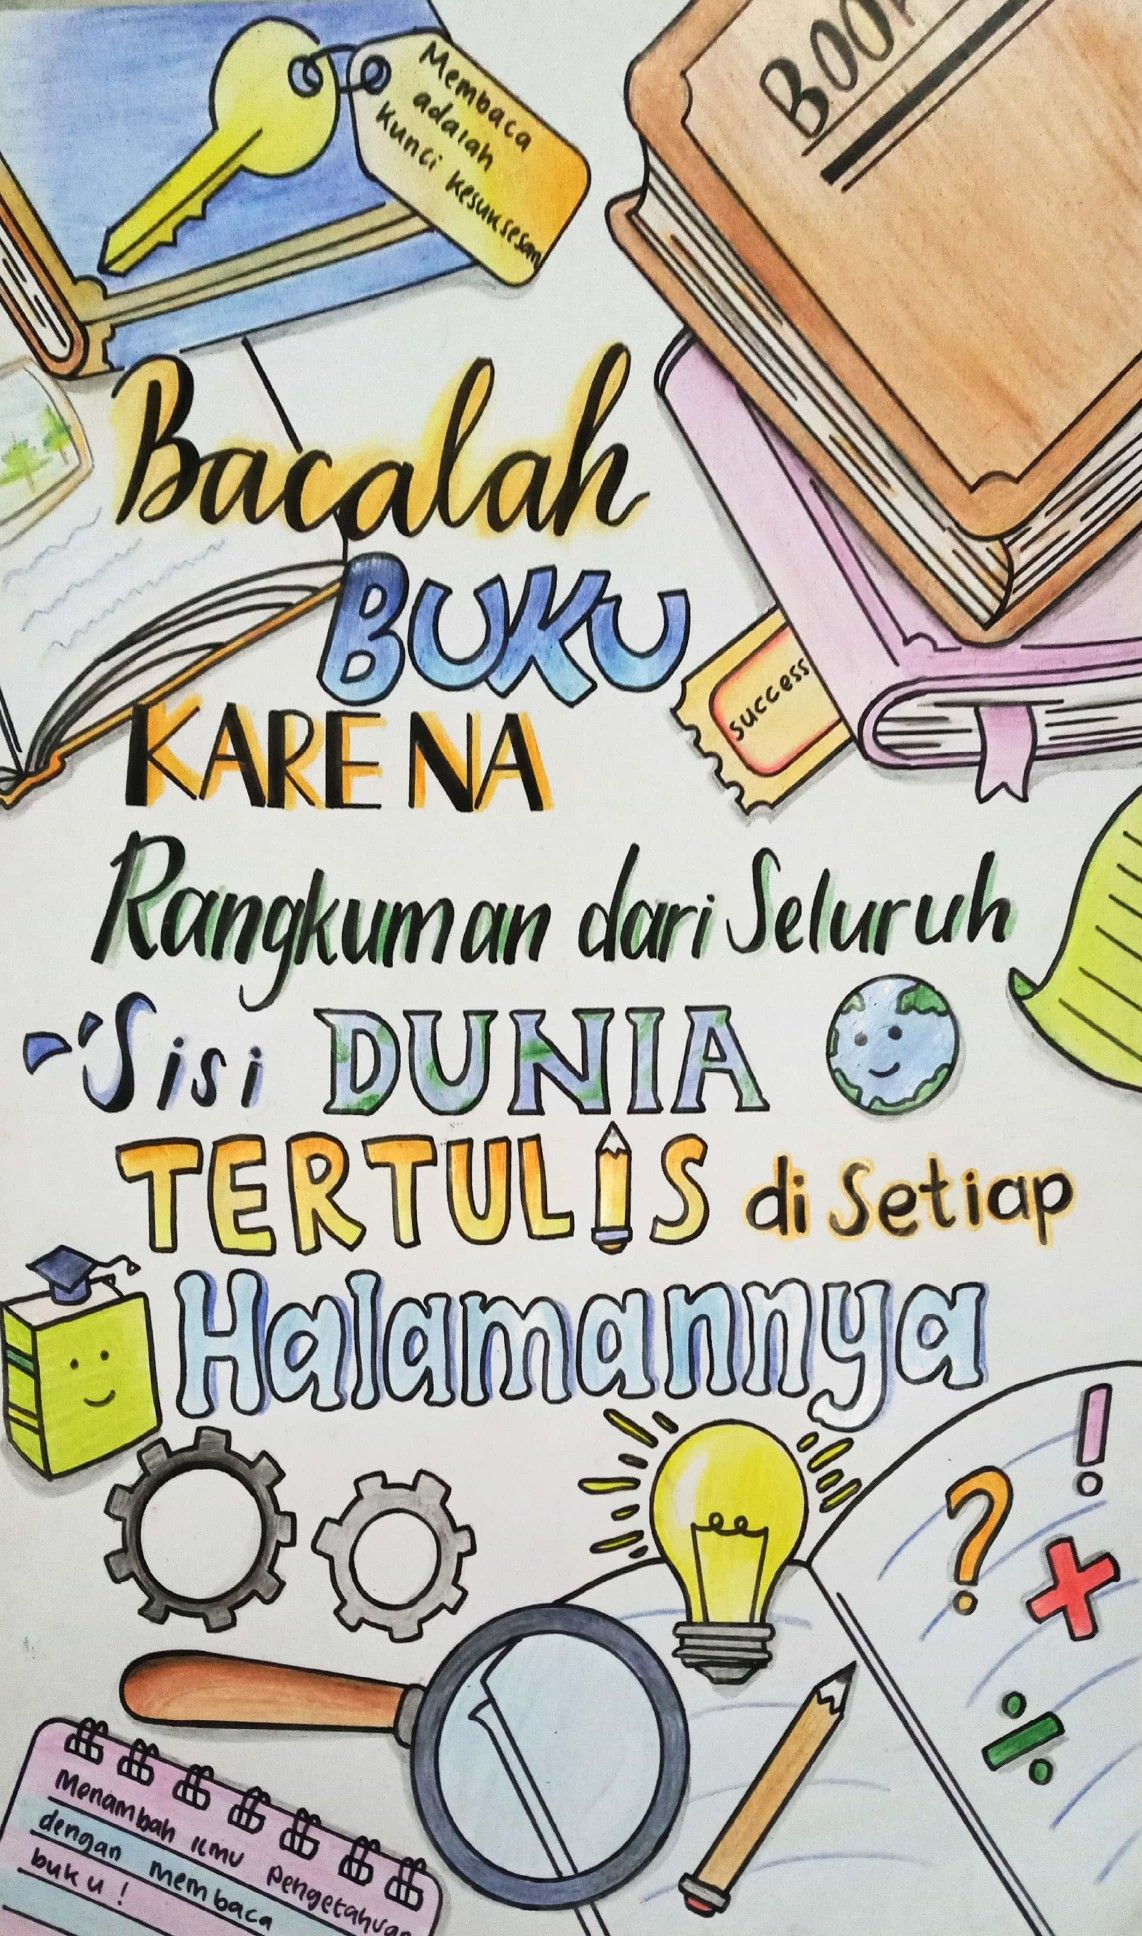 Membaca
adalah
kunci kesuksesan
BOOK
Bacalah
BUKU
success
KARENA
Rangkuman dari Seluruh
Sisi DUNIA
TERTULIS di Setiap
Halamannya
Menambah ilmu pengetahuan
dengan membaca
buku!